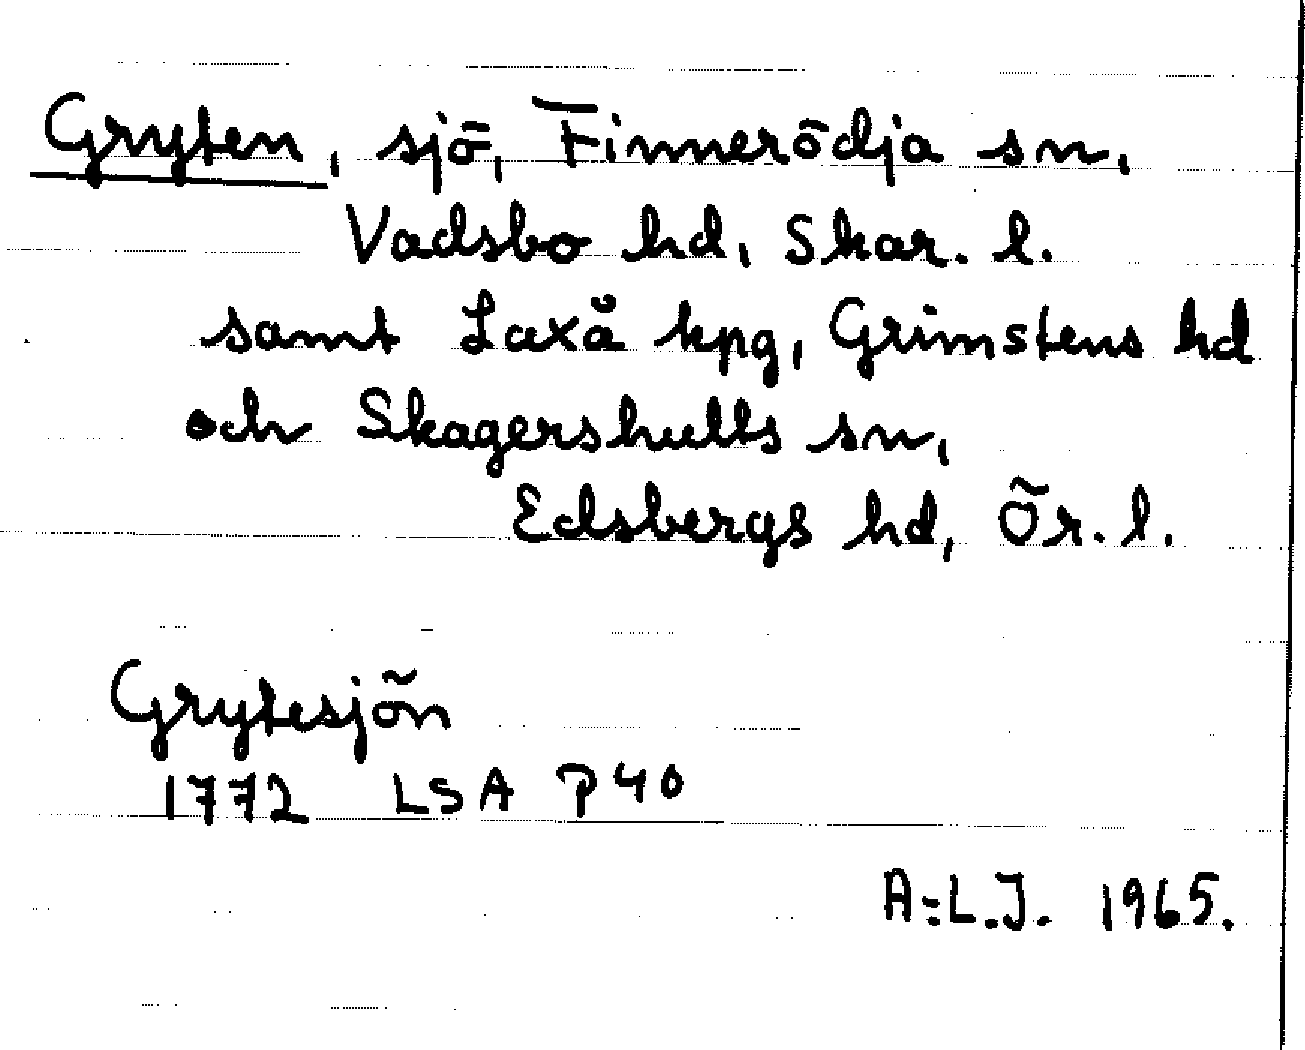 Gryten, sjö, Finnerödja sn,
Vadsbo hd, Skar. l.
samt Laxå kpg, Grimstens hd
och Skagershults sn,
Edsbergs hd, Ör. l.
Grytesjön
1772 LSA P40
A:L.J. 1965.